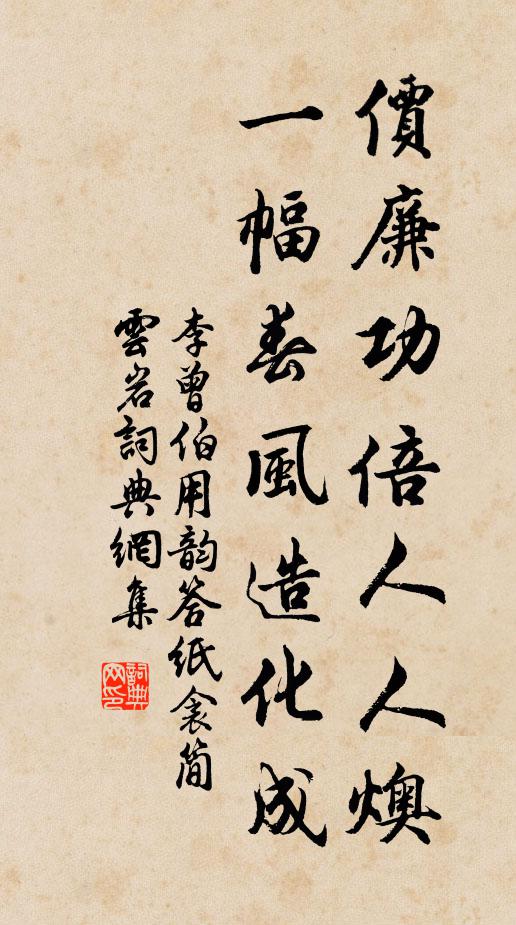 價廉功倍人人燠
一幅春風造化成
李曾伯用韵答紙衾簡
雲岩詞典網集
詞典网印